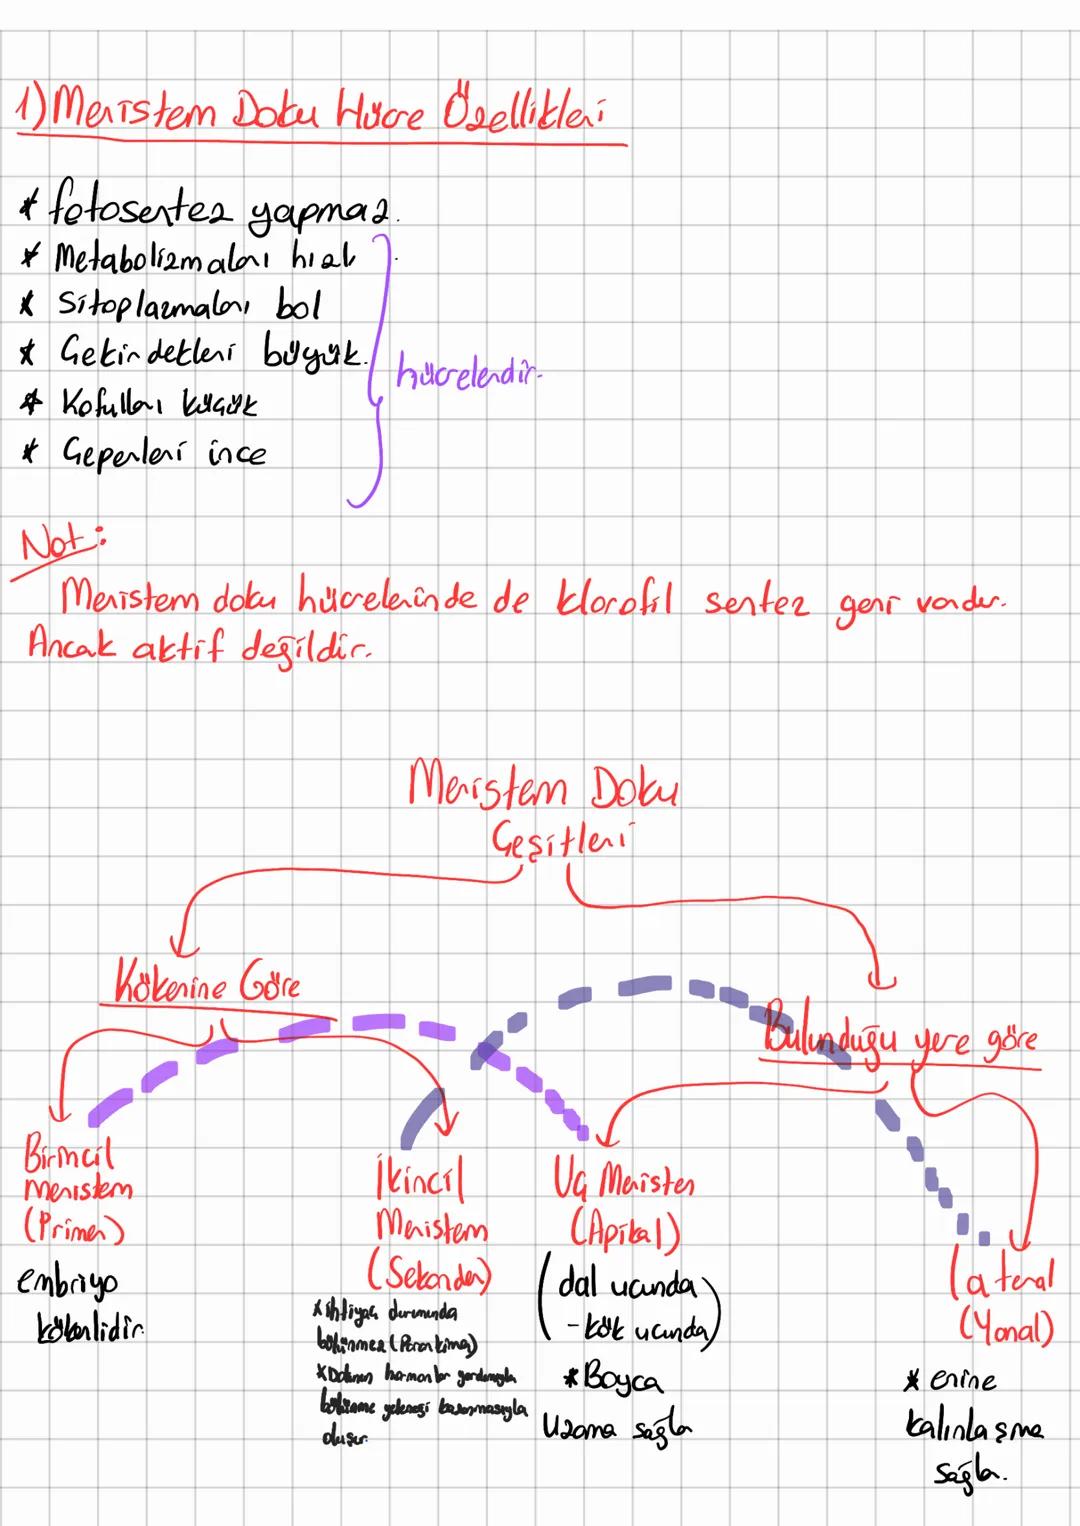 1) Meristem Doku Hücre Özellikleri
* fotosentez yapmaz.
* Metabolizmaları hızlı
* Sitoplazmaları bol
* Çekirdekleri büyük.
* Kofulları küçük
* Çeperleri ince
hücrelerdir.
Not:
Meristem doku hücrelerinde de klorofil sentez geni vardır.
Ancak aktif değildir.
Meristem Doku
Çeşitleri
Kökenine Göre
Bulunduğu yere göre
Birincil
Meristem
(Primer)
embriyo
kökenlidir.
İkincil
Meristem
(Sekonder)
* ihtiyaç durumunda
bölünmez (Parankima)
* Dokunun hormonlar yardımıyla
bölünme yeteneği kazanmasıyla
oluşur.
Uç Meristem
(Apikal)
(dal ucunda
- kök ucunda)
* Boyca
Uzama sağlar
Lateral
(Yanal)
* enine
kalınlaşma
sağlar.